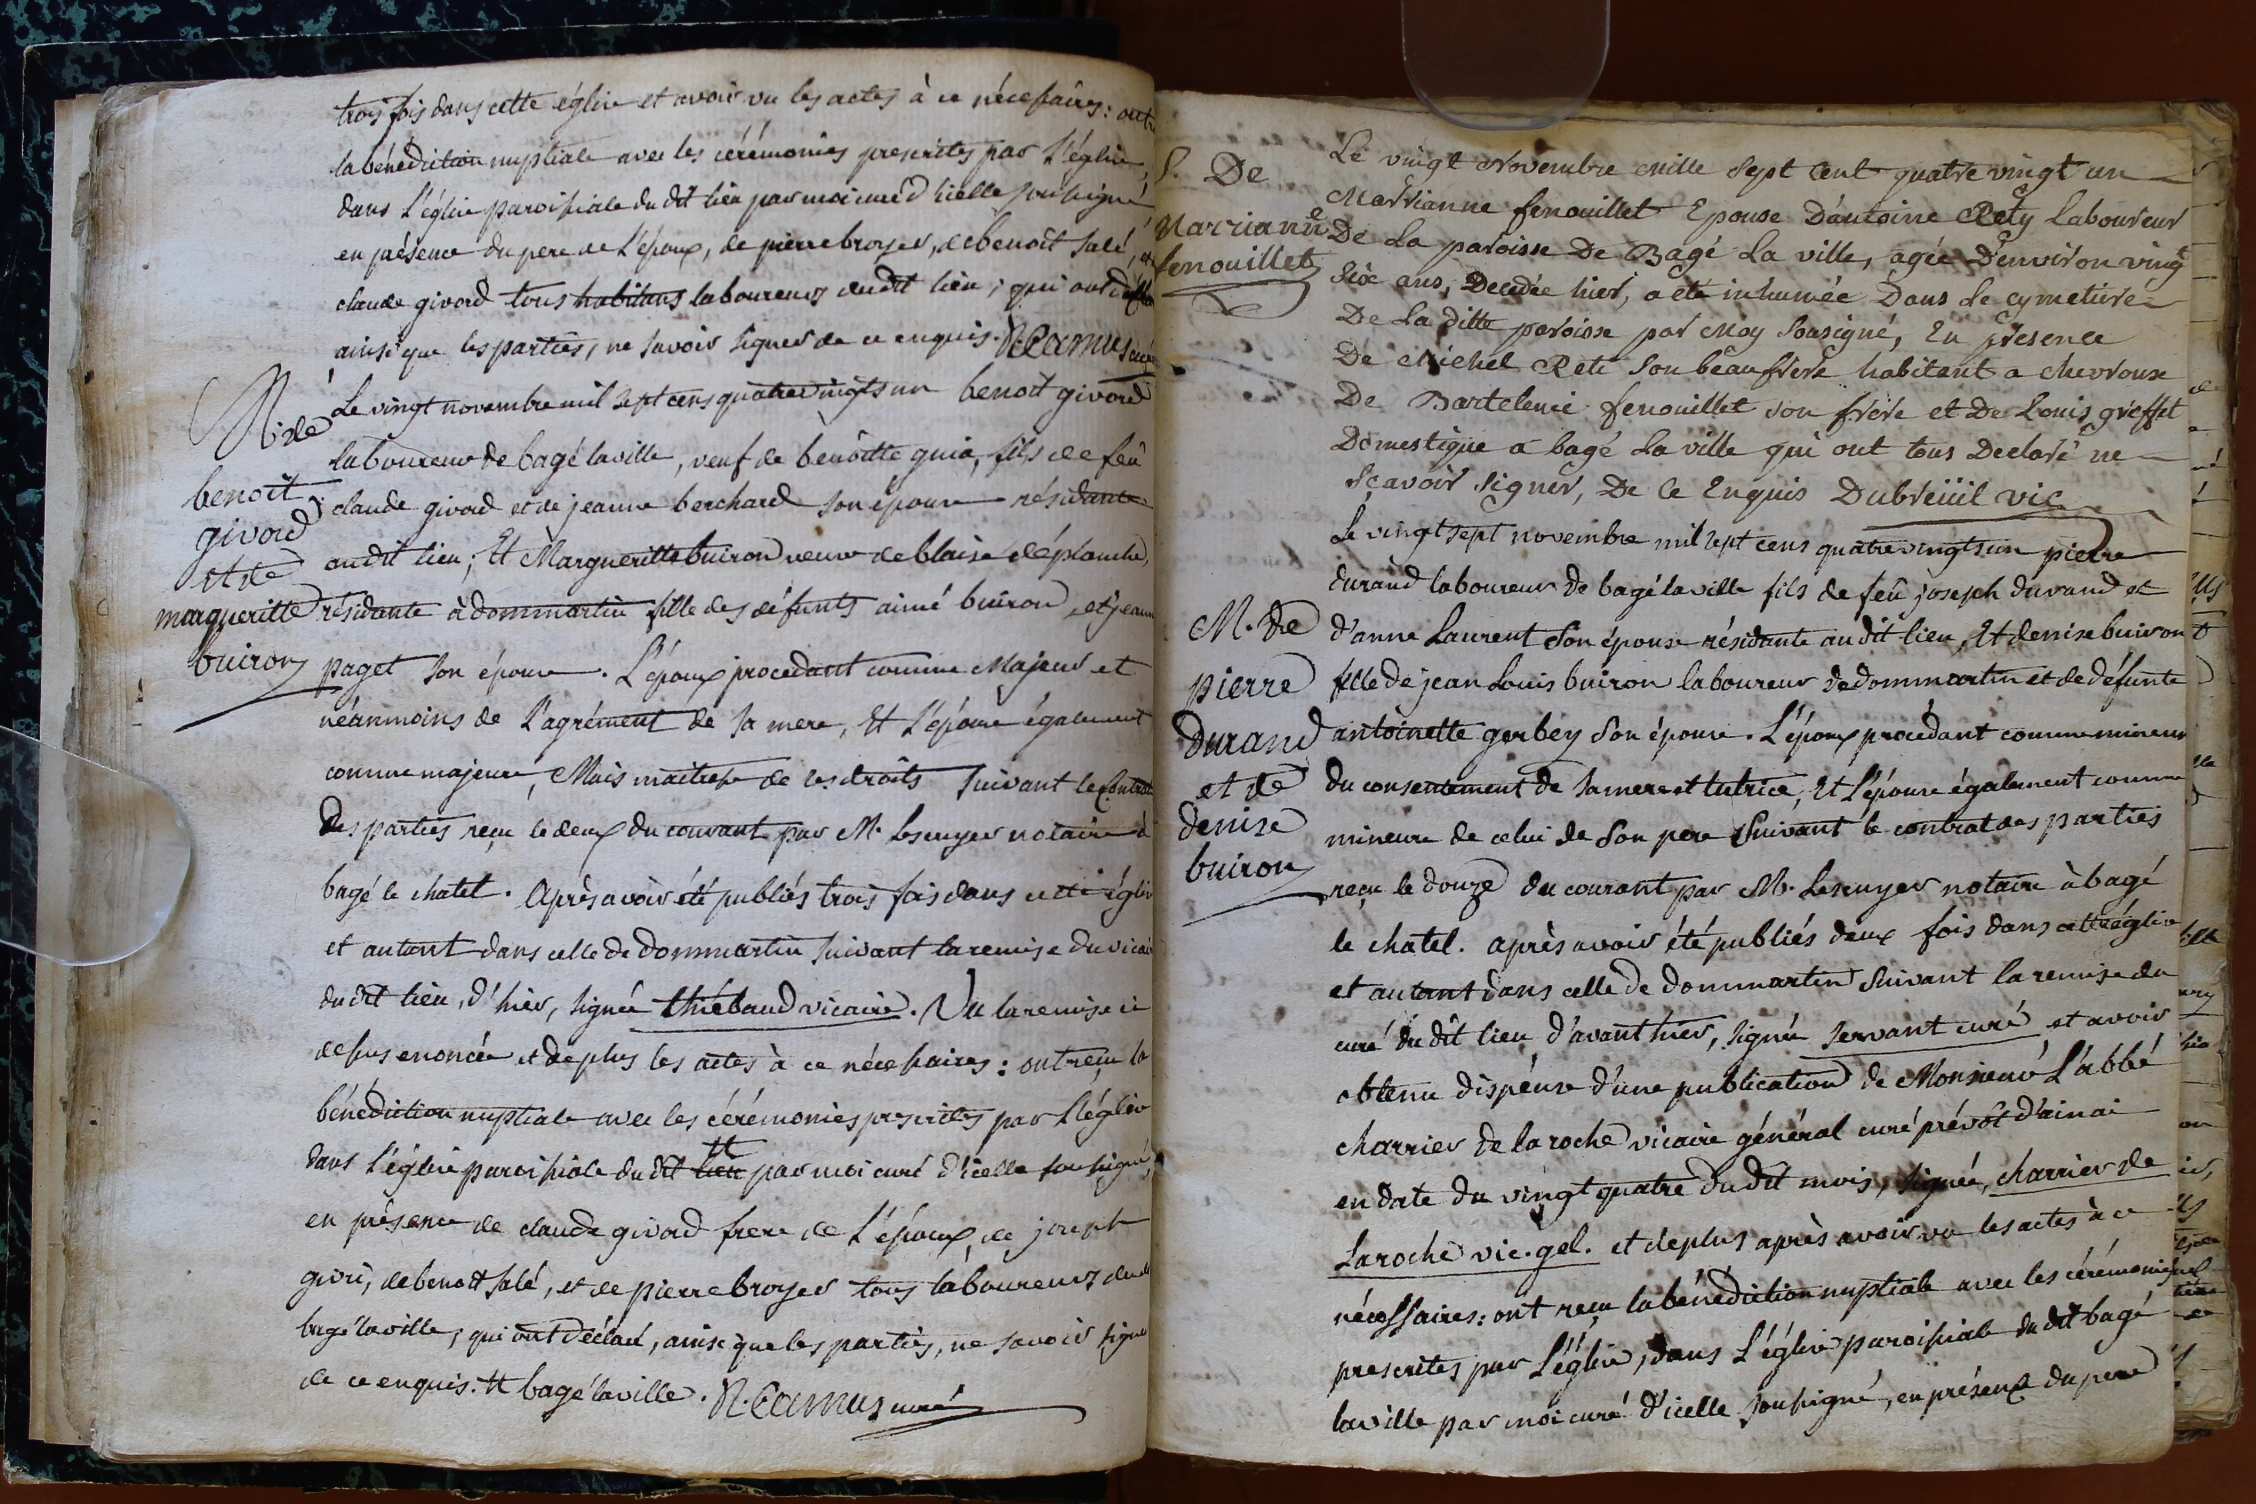 trois fois dans cette église et avoir vu les actes à ce nécessaires: ont
la bénédiction nuptiale avec les cérémonies prescrites par L'église
dans L'église paroissiale du dit lieu par moi curé d'icelle soussigné
en présence du pere de L'époux, de pierre broyer, de benoit salé, et
claude givord tous habitans laboureurs dudit lieu, qui ont
ainsi que les parties, ne savoir signer de ce enquis. N. Camus curé
M. de
benoit
givord
et de
margueritte
buiron
Le vingt novembre mil sept cens quatre vingts un benoit givord
laboureur de bagé la ville, veuf de benoitte guia, fils de feû
claude givord et de jeanne berchard son épouse résidante
audit lieu; Et Margueritte buiron veuve de blaise déplanche,
résidante à dommartin fille des défunts aimé buiron, et jeanne
paget son épouse. L'époux procedant comme Majeur et
néanmoins de L'agrément de sa mere, Et L'épouse également
comme majeure, Mais maitresse de ses droits suivant le contrat
des parties reçu le deux du courant par M. Lescuyer notaire à
bagé le chatel. Après avoir été publiés trois fois dans cette église
et autant dans celle de dommartin suivant la remise du vicaire
du dit lieu, d'hier, signée thiébaud vicaire. Vu la remise ci
dessus enoncée et de plus les actes à ce nécessaires: ont reçu la
bénédiction nuptiale avec les cérémonies prescrites par L'église
dans L'église paroissiale du dit lieu # par moi curé d'icelle soussigné,
en présence de claude givord frere de L'époux, de joseph
givri, de benoit salé, et de pierre broyer tous laboureurs dudit
bagé la ville; qui ont déclaré, ainsi que les parties, ne savoir signer
de ce enquis. # bagé la ville. N. Camus curé
S. De
Marrianne
fenouillet
Le vingt Novembre Mille Sept Cent quatre vingt un
Marrianne fenouillet Epouse D'antoine Rety Laboureur
De La paroisse De Bagé La ville, agée D'environ vingt
Six ans, Decedée hier, a eté inhumée Dans Le cymetiere
De La ditte paroisse par Moy Sousigné, En presence
De Michel Reti Son beaufrere habitant a Chevroux
De Bartelemi fenouillet son frere et De Louis greffet
Domestique a bagé La ville qui ont tous Declaré ne
Sçavoir Signer, De Ce Enquis Dubreüiil vic
M. de
pierre
Durand
et de
denise
buiron
Le vingt sept novembre mil sept cens quatre vingts un pierre
durand laboureur de bagé la ville fils de feû joseph durand et
d'anne Laurent Son épouse résidante au dit lieu, Et denise buiron
fille de jean Louis buiron laboureur de dommartin et de défunte
antoinette gerbey Son épouse. L'époux procédant comme mineur
du consentement de sa mere et tutrice, Et L'épouse également comme
mineure de celui de Son pere Suivant le contrat des parties
reçu le douze du courant par M. Lescuyer notaire à bagé
le chatel. après avoir été publiés deux fois dans cette église
et autant dans celle de dommartin suivant la remise du
curé du dit lieu d'avant hier, signée servant curé et avoir
obtenu dispense d'une publication de Monsieur L'abbé
charrier de la roche vicaire général curé prévôt d'ainai
en date du vingt quatre du dit mois, signée, charrier de
Laroche vic. gel. et de plus après avoir vu les actes à ce
nécessaires: ont reçu la bénédiction nuptiale avec les cérémonies
prescrites par L'église, dans L'église paroissiale du dit bagé
la ville par moi curé d'icelle soussigné, en présence du pere